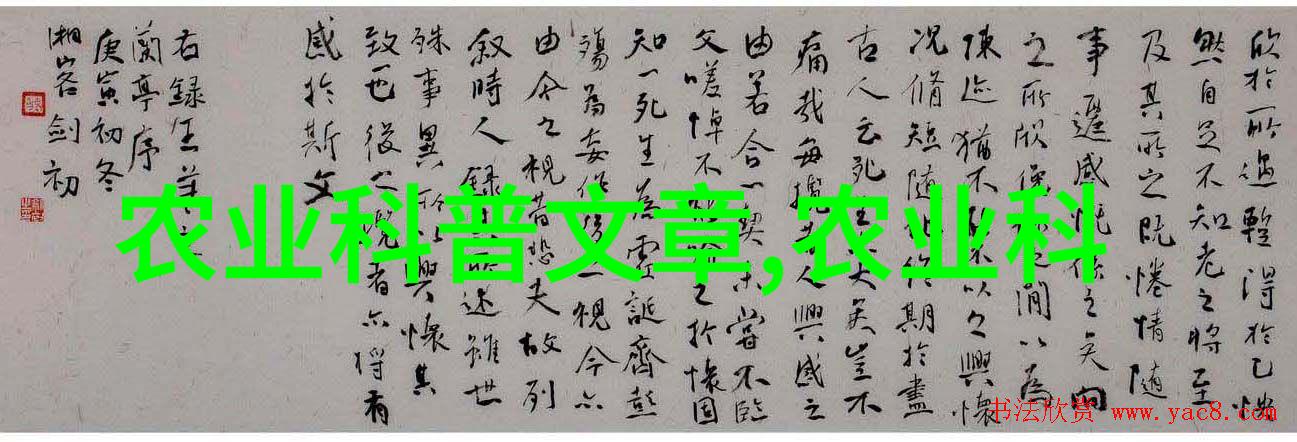 欣於所遇蹔得於己快
然自足不知老之將至
及其所之既惓情隨
事遷感慨係之矣向
之所欣俛仰之間以為
陳迹猶不能不以之興懷
況脩短隨化終期於盡
古人云死生亦大矣豈不
痛哉每攬昔人興感之
由若合一契未嘗不臨
文嗟悼不能喻之於懷固
知一死生為虛誕齊彭
殤為妄作後之視今亦
由今之視昔悲夫故列
敘時人錄其所述雖世
殊事異所以興懷其
致一也後之覽者亦將有
感於斯文
右錄王羲之
蘭亭序
庚寅初冬
湘客劍初
农业科普文章,农业科
书法欣赏 www.yac8.com